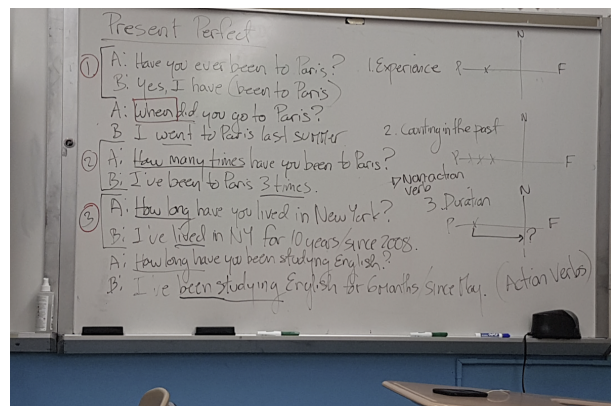 Present Perfect
① A: Have you ever been to Paris?
B: Yes, I have (been to Paris)
A: When did you go to Paris?
B I went to Paris last summer
② A: How many times have you been to Paris?
B: I've been to Paris 3 times.
③ A: How long have you lived in New York?
B: I've lived in NY for 10 years/since 2008.
A: How long have you been studying English?
B: I've been studying English for 6 months/since May. (Action Verbs)
1. Experience
N
P
F
2. Counting in the past
N
P
F
Non-action
verb
3. Duration
N
P
F
?